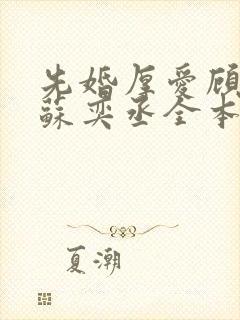 先婚厚爱顾
蘇奕丞全本
夏潮